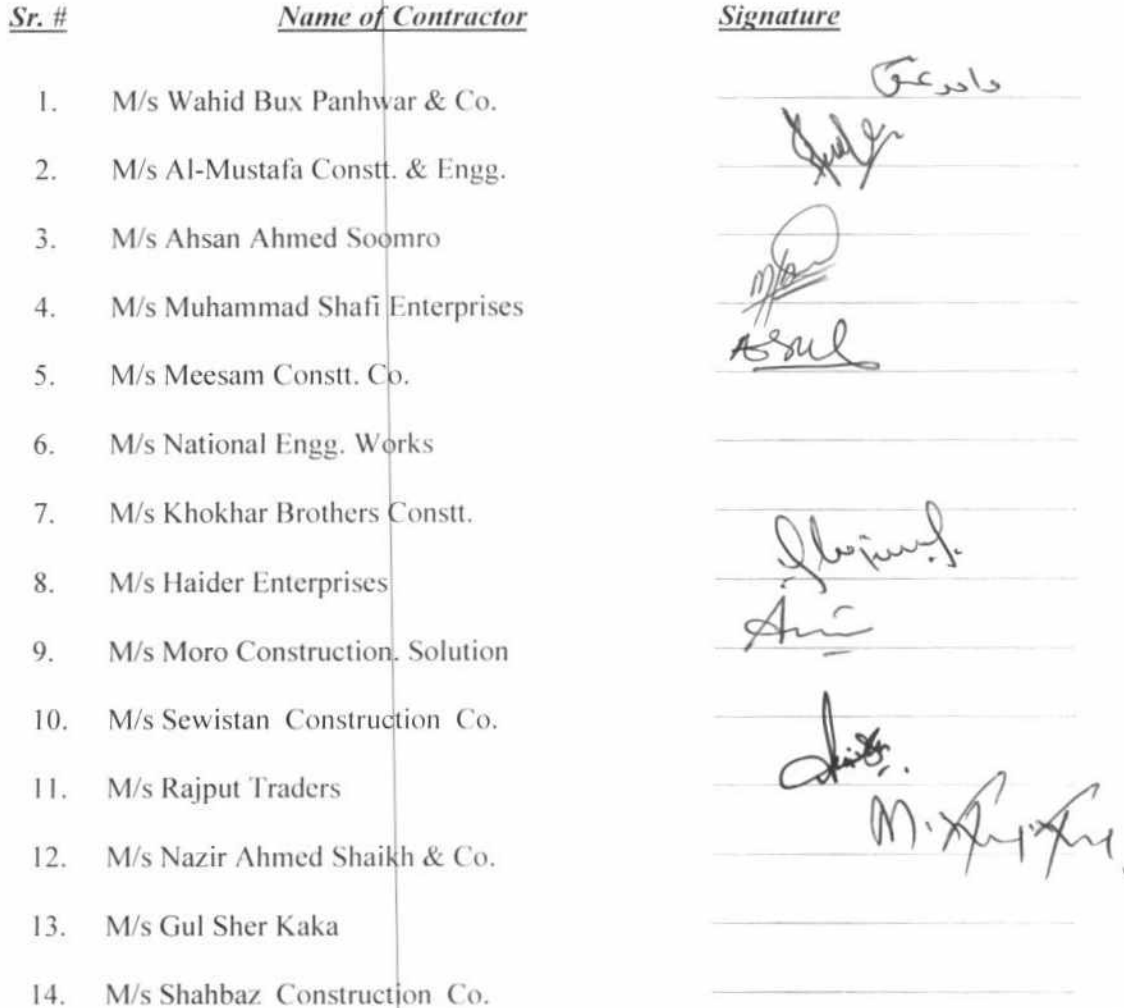 Sr. # Name of Contractor Signature
1. M/s Wahid Bux Panhwar & Co.
2. M/s Al-Mustafa Constt. & Engg.
3. M/s Ahsan Ahmed Soomro
4. M/s Muhammad Shafi Enterprises
5. M/s Meesam Constt. Co.
6. M/s National Engg. Works
7. M/s Khokhar Brothers Constt.
8. M/s Haider Enterprises
9. M/s Moro Construction. Solution
10. M/s Sewistan Construction Co.
11. M/s Rajput Traders
12. M/s Nazir Ahmed Shaikh & Co.
13. M/s Gul Sher Kaka
14. M/s Shahbaz Construction Co.